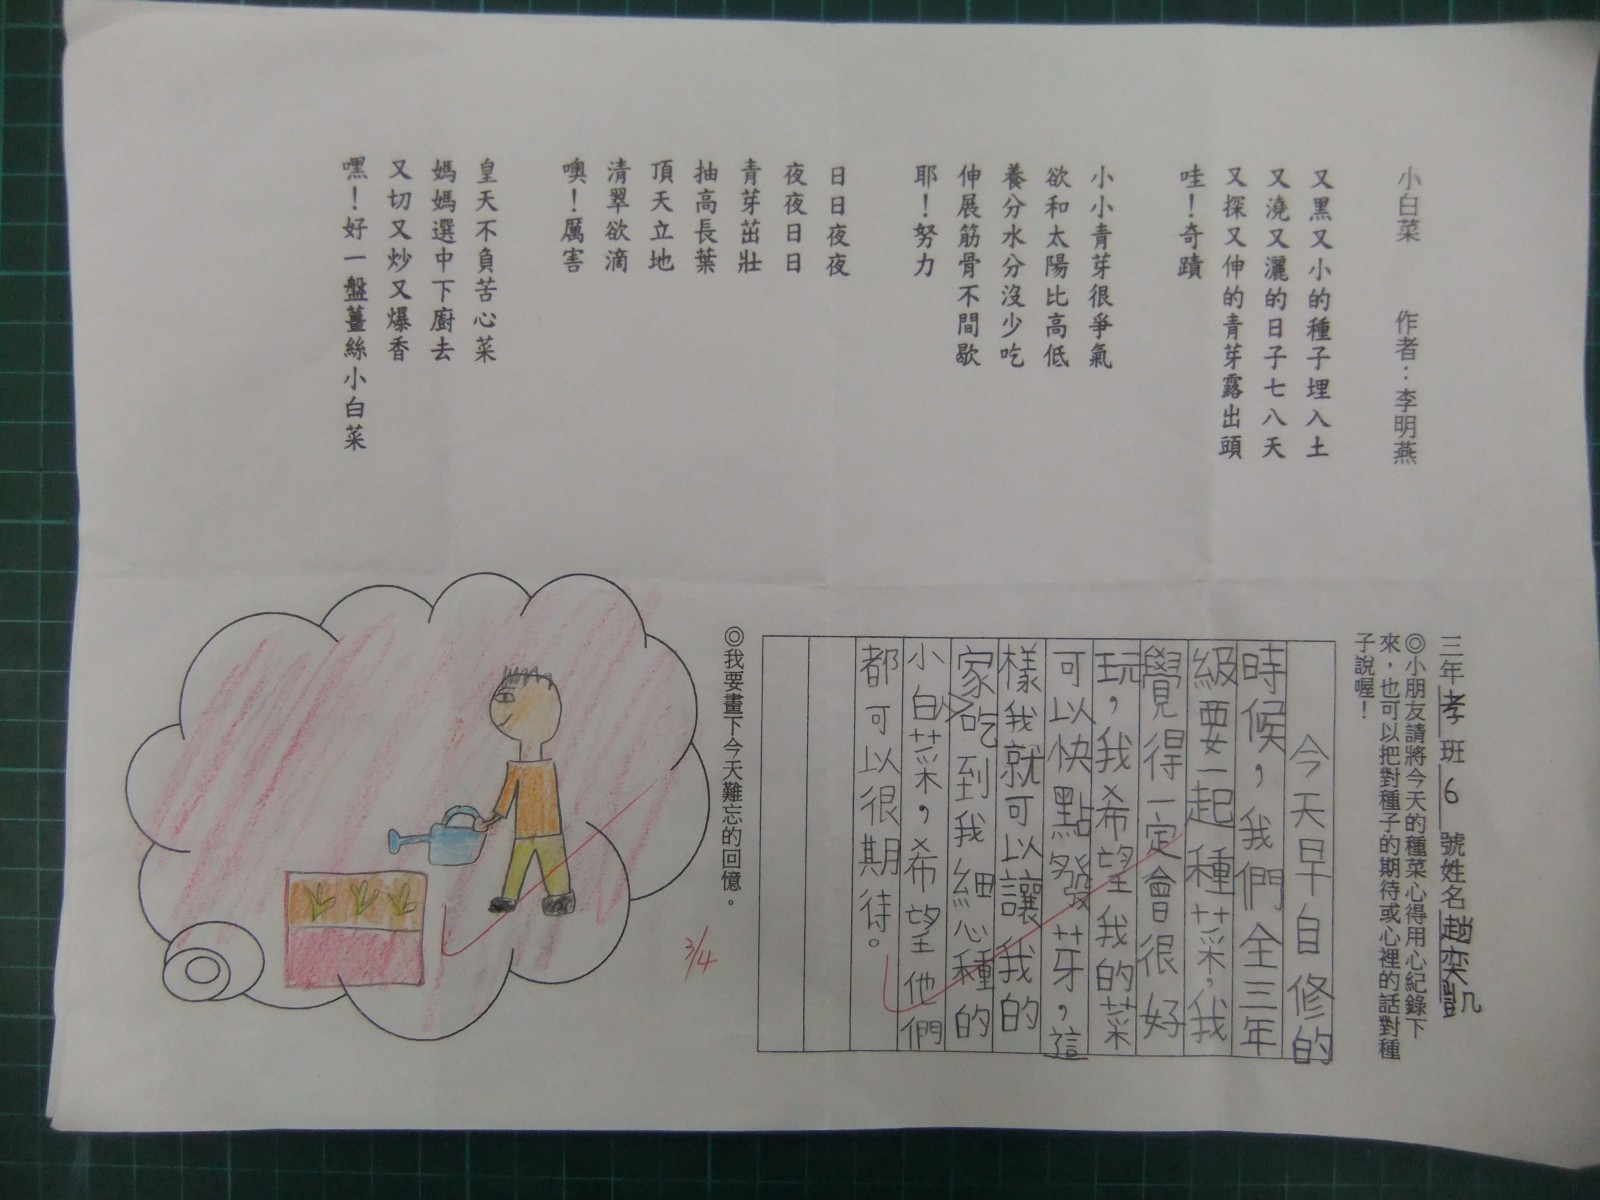 小白菜　作者：李明燕
又黑又小的種子埋入土
又澆又灑的日子七八天
又探又伸的青芽露出頭
哇！奇蹟
小小青芽很爭氣
欲和太陽比高低
養分水分沒少吃
伸展筋骨不間歇
耶！努力
日日夜夜
夜夜日日
青芽茁壯
抽高長葉
頂天立地
清翠欲滴
噢！厲害
皇天不負苦心菜
媽媽選中下廚去
又切又炒又爆香
嘿！好一盤薑絲小白菜
三年孝班6號姓名趙奕凱
◎小朋友請將今天的種菜心得用心紀錄下
來，也可以把對種子的期待或心裡的話對種
子說喔！
今天早自修的
時候，我們全三年
級要一起種菜，我
覺得一定會很好
玩，我希望我的菜
可以快點發芽，這
樣我就可以讓我的
家吃到我細心種的
小白菜，希望他們
都可以很期待。
◎我要畫下今天難忘的回憶。
3/4